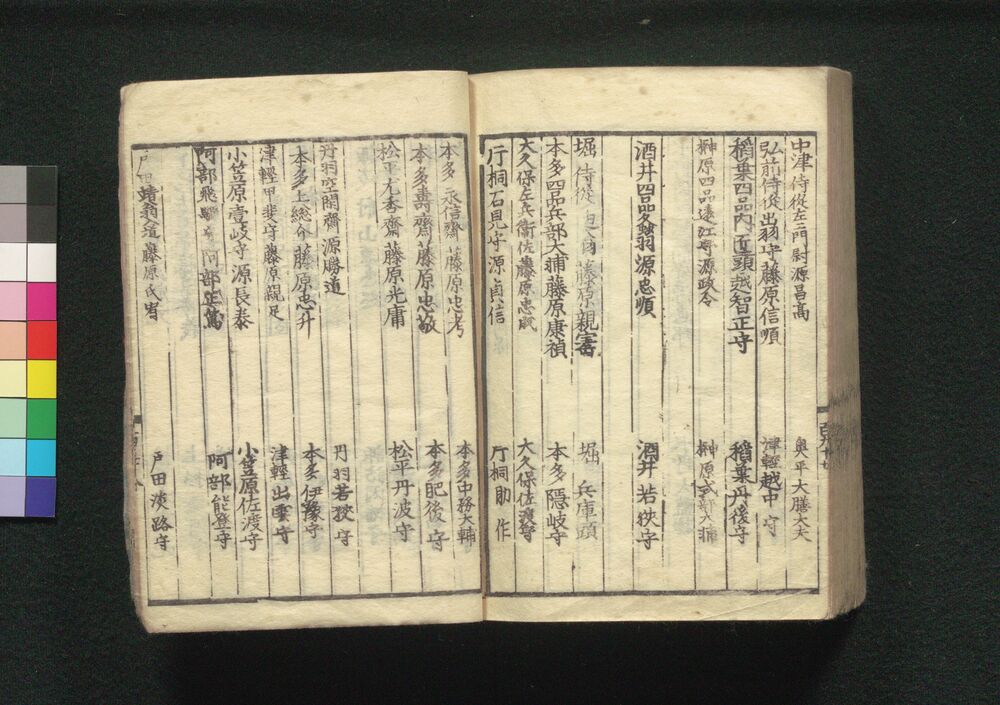 中津侍從左衛門尉源昌高 奥平大膳大夫
弘前侍従出羽守藤原信順 津軽越中守
稲葉四品内匠頭越智正守 稲葉丹後守
榊原四品遠江守源政令 榊原式部大輔
酒井四品源忠順 酒井若狭守
堀侍從藤原親寚 堀兵庫頭
本多四品兵部大輔藤原康禎 本多隠岐守
大久保左兵衛佐藤原忠 大久保佐渡守
片桐石見守源貞信 片桐助作
本多永信齋藤原忠考 本多中務大輔
本多壽齋藤原忠敬 本多肥後守
松平齋藤原光庸 松平丹波守
丹羽空間齋源勝道 丹羽若狭守
本多上総介藤原忠升 本多伊豫守
津輕甲斐守藤原親足 津輕出雲守
小笠原壹岐守源長泰 小笠原佐渡守
阿部飛騨守阿部正篤 阿部能登守
戸田靖翁入道藤原氏宥 戸田淡路守